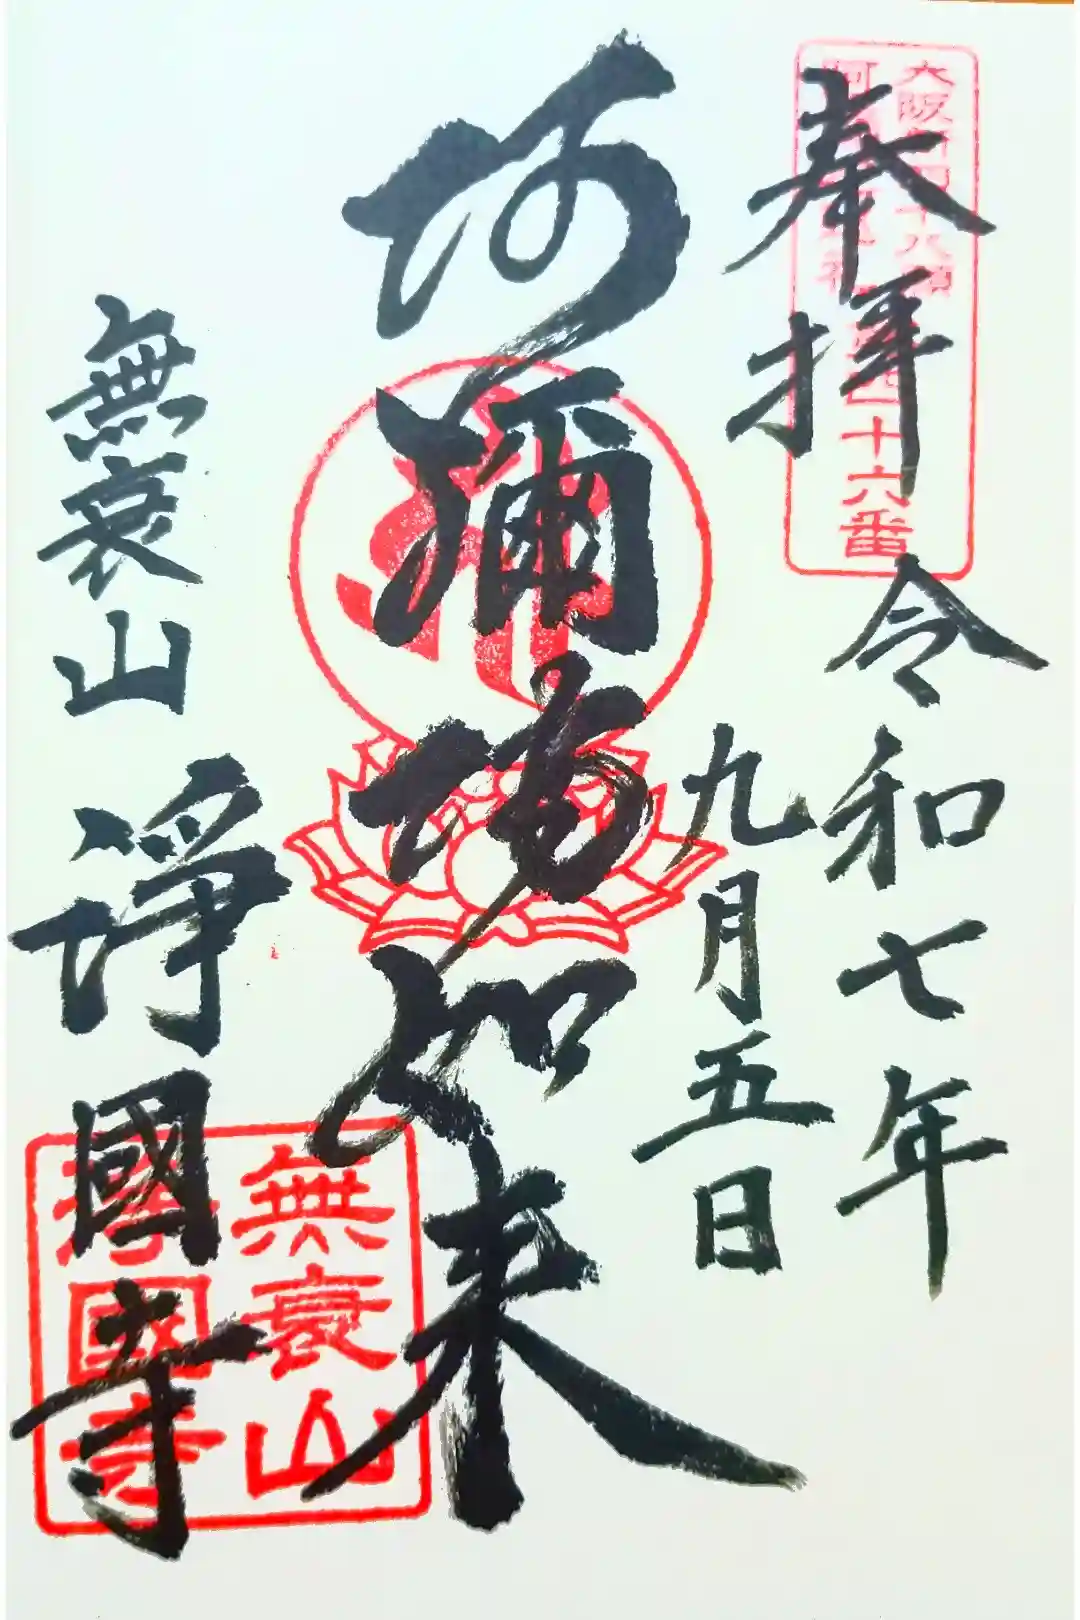 奉拝
令和七年
九月五日
阿彌陀如来
無衰山
淨國寺
大阪新四十八願
四十六番
無衰山
淨國寺